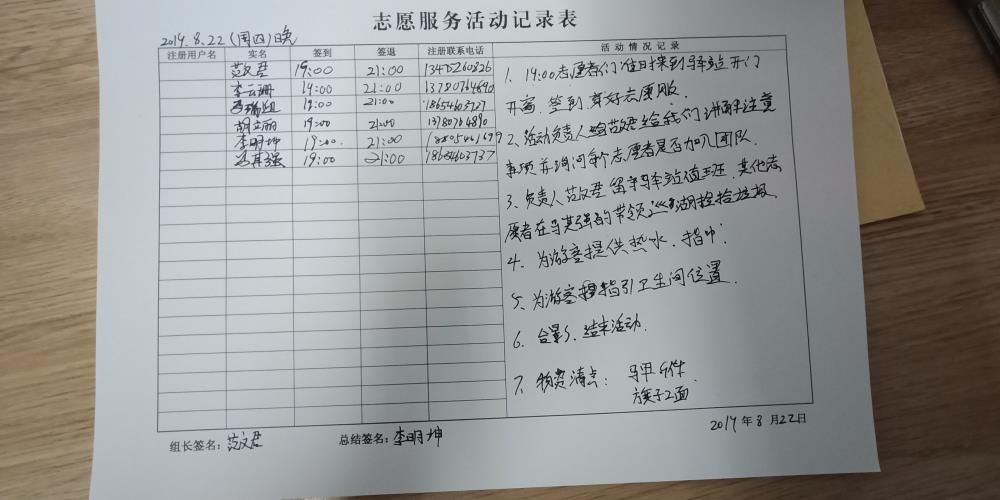 志愿服务活动记录表
2019.8.22(周四)晚
注册用户名 实名 签到 签退 注册联系电话 活动情况记录
范文君 19:00 21:00 13475260826
李云珊 19:00 21:00 13780764690
冯瑞旭 19:00 21:00 18654603737
胡立丽 19:00 21:00 13780764890
李明坤 19:00 21:00
冯其强 19:00 21:00 18654603737
1. 19:00志愿者们准时来到驿站开门
开窗.签到.穿好志愿服.
2、活动负责人 范文君给我们讲解注意
事项并询问每个志愿者是否加入团队
3.负责人范文君留守驿站值班.其他志
愿者在冯其强的带领巡湖捡拾垃圾
4.为游客提供热水.指示.
5、为游客指引卫生间位置.
6.合影.结束活动.
7.物资清点: 马甲 件
旗子2面
组长签名:范文君 总结签名:李明坤
2019年8月22日